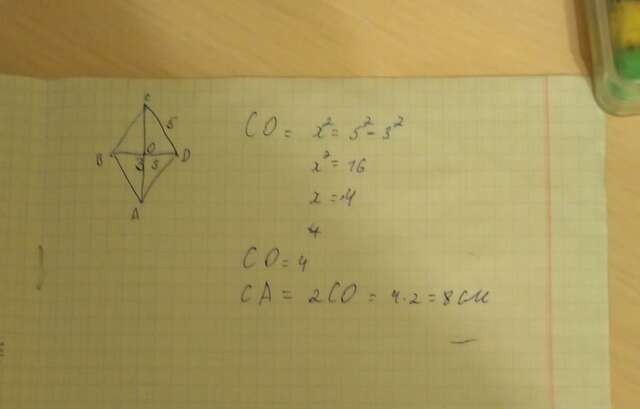 C
5
B
O
3
3
D
A
CO = x² = 5² - 3²
x² = 16
x = 4
4
CO = 4
CA = 2CO = 4 · 2 = 8 см